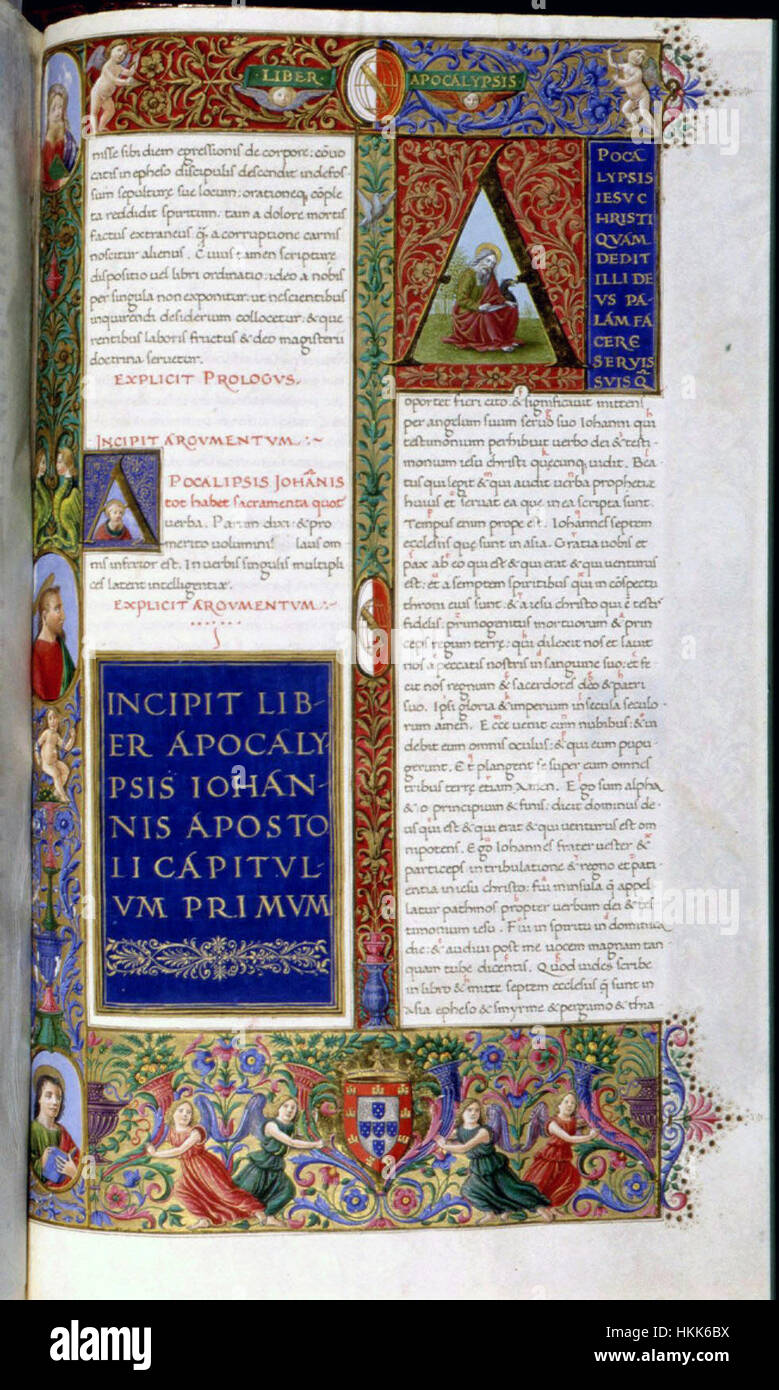 LIBER
APOCALYPSIS
nisse sibi diem egressionis de corpore: cōvo
catis in epheso discipulis descendit in defos
sum sepulture sue locum: orationeq; cōple
ta reddidit spiritum. tam a dolore mortis
factus extraneus q̄ a corruptione carnis
noscitur alienus. Cuius tamen scripture
dispositio vel libri ordinatio ideo a nobis
per singula non exponitur. ut nescientibus
inquirendi desiderium collocetur: & que
rentibus laboris fructus & deo magisterii
doctrina servetur.
EXPLICIT PROLOGVS.
INCIPIT ARGVMENTVM
APOCALIPSIS JOHĀNIS
tot habet sacramenta quot
verba. Parum dixi: & pro
merito voluminis laus om
nis inferior est. In verbis singulis multipli
ces latent intelligentiae.
EXPLICIT ARGVMENTVM
INCIPIT LIB-
ER APOCALY-
PSIS IOHAN-
NIS APOSTO
LI CAPITVL-
VM PRIMVM
A POCA
LYPSIS
IESV C
HRISTI
QVAM
DEDIT
ILLI DE
VS PA-
LAM FA
CERE
SERVIS
SVIS Q̄
oportet fieri cito. & significavit mittens
per angelum suum servo suo Iohanni qui
testimonium perhibuit verbo dei & testi-
monium iesu christi quecunq; vidit. Bea-
tus qui legit & qui audit verba prophetiae
huius et servat ea que in ea scripta sunt.
Tempus enim prope est. Iohannes septem
ecclesiis que sunt in asia. Gratia vobis et
pax ab eo qui est & qui erat & qui venturus
est: et a semptem spiritibus qui in cōspectu
throni eius sunt: & a iesu christo qui ē testis
fidelis: primogenitus mortuorum & prin
ceps regum terre: qui dilexit nos et lavit
nos a peccatis nostris in sanguine suo: et fe
cit nos regnum & sacerdotes deo & patri
suo. Ipsi gloria & imperium in secula seculo
rum amen. Ecce venit cum nubibus: & vi
debit eum omnis oculus: & qui eum pupu
gerunt. Et plangent se super eum omnes
tribus terre etiam Amen. Ego sum alpha
& o principium & finis: dicit dominus de-
us qui est & qui erat & qui venturus est om
nipotens. Ego Iohannes frater vester &
particeps in tribulatione & regno et pati-
entia in iesu christo: fui in insula q̄ appel
latur pathmos propter verbum dei & tes
timonium iesu. Fui in spiritu in dominica
die: & audivi post me vocem magnam tan
quam tube dicentis. Quod vides scribe
in libro & mitte septem ecclesiis q̄ sunt in
asia epheso & smyrne & pergamo & thia
alamy
Image ID: HKK6BX
www.alamy.com